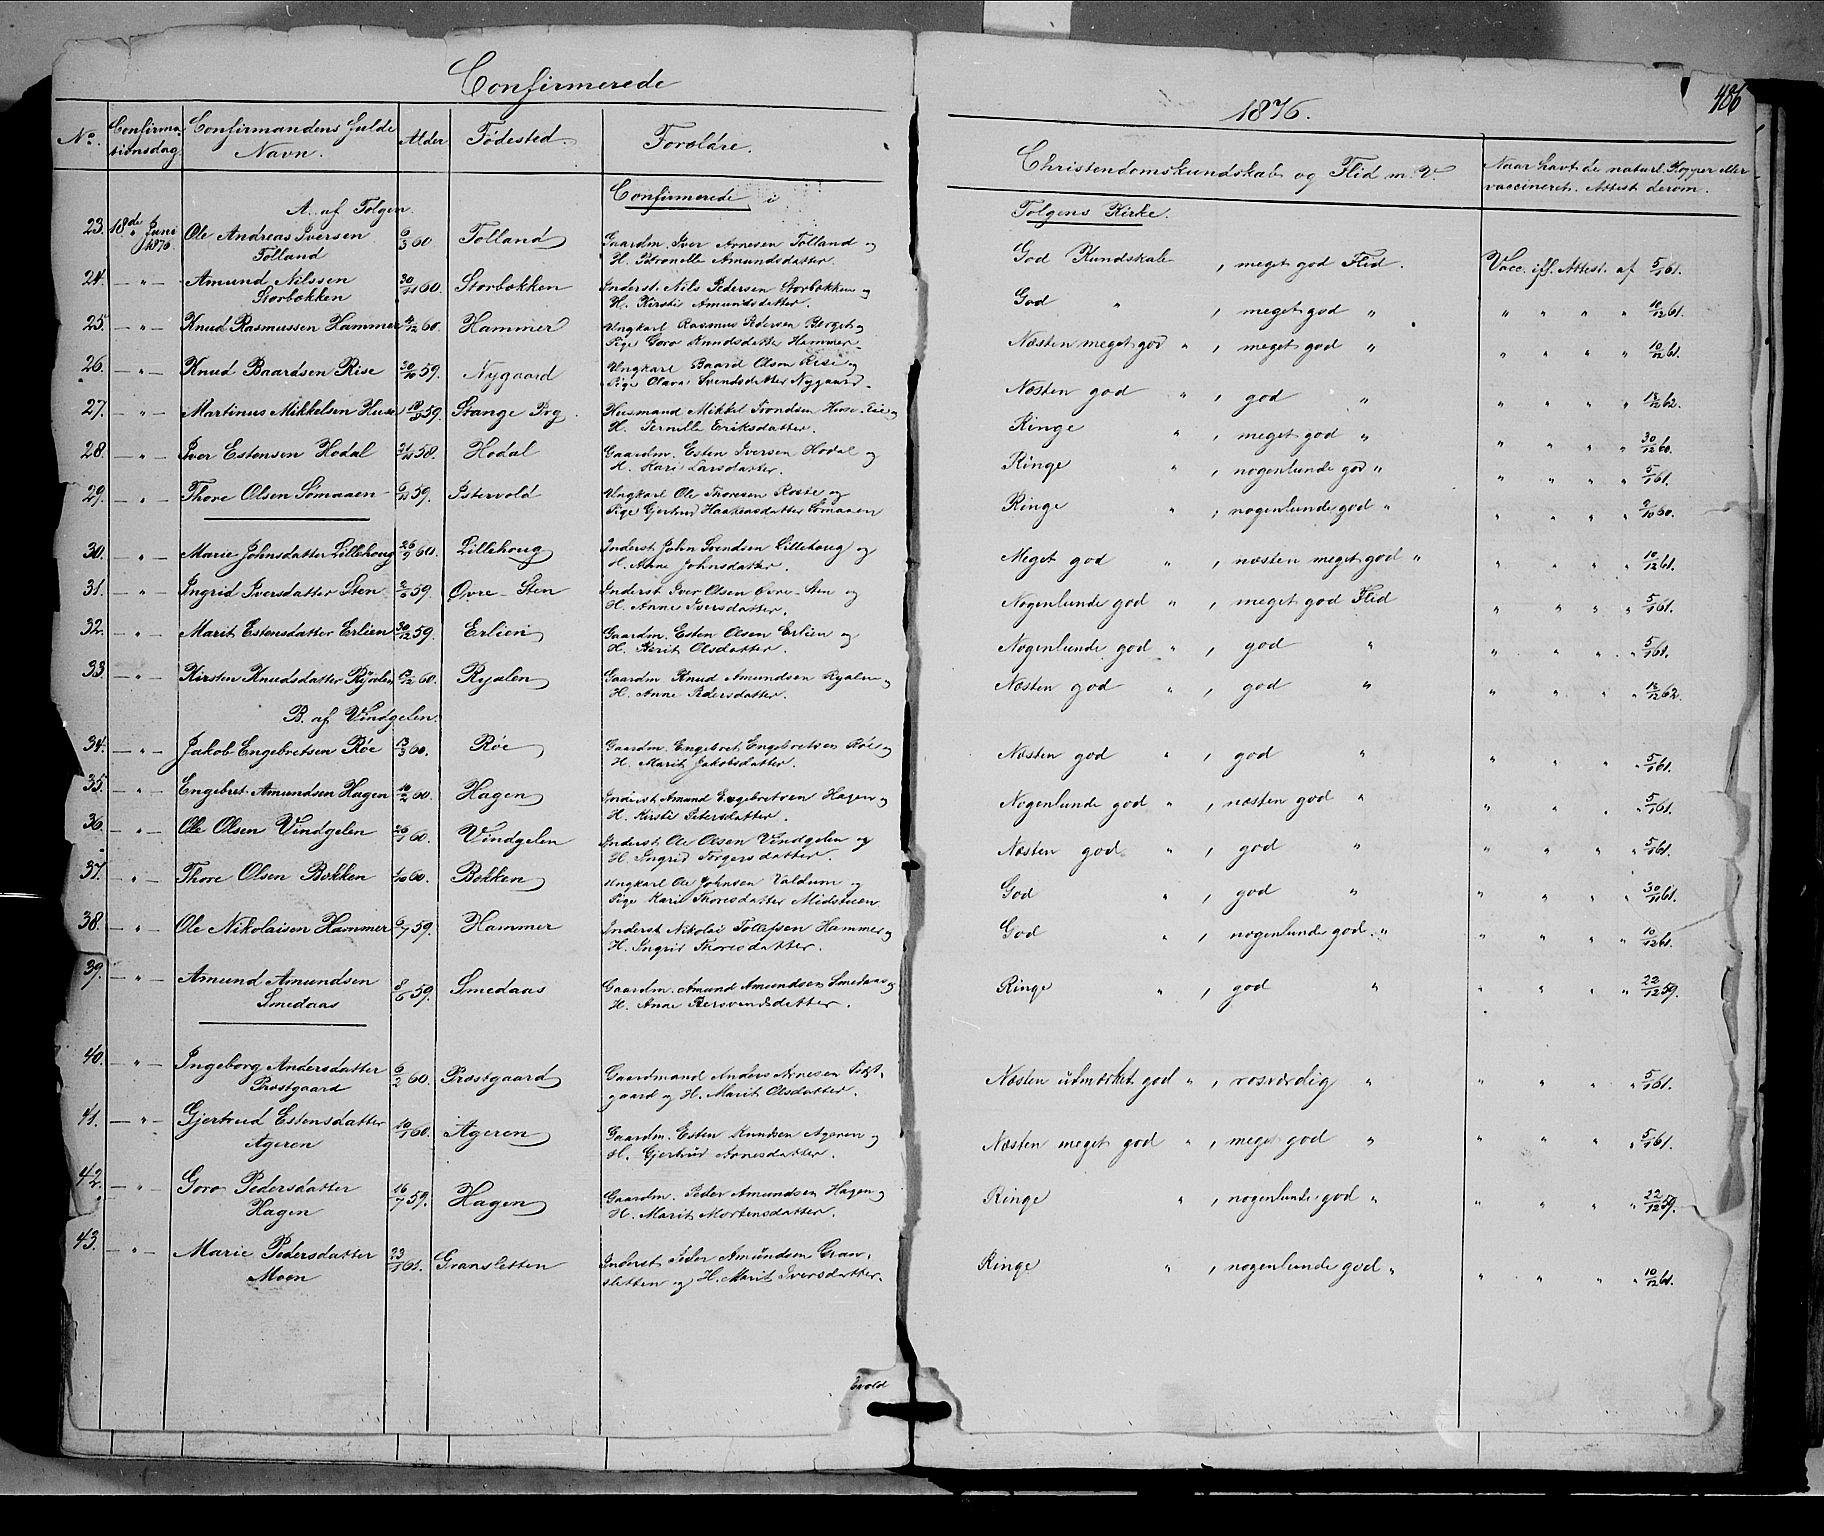 Confirmerede
1876.
486
No. Confirmationsdag Confirmandens fulde Navn. Alder Fødested. Forældre. Christendomskundskab og Flid m. V. Naar havt de naturl. Kopper eller vaccineret. Attest derom.
A. af Tolgen. Confirmerede i Tolgens Kirke.
23. 18de Juni 1876 Ole Andreas Iversen 6/3 60. Tolland Gaardm. Iver Arnesen Tolland og God Kundskab, meget god Flid. Vacc. iflg. Attest. af 5/1 61.
Tolland H. Petronelle Amundsdatter.
24. — " — Amund Nilssen 60. Storbækken Inderst. Nils Pedersen Storbækken og God " , meget god " " " " " 10/12 61.
Storbækken H. Kirsti Amundsdatter.
25. — " — Knud Rasmussen Hammer 60. Hammer Ungkarl Rasmus Pedersen Berget og Næsten meget god " , meget god " " " " " 10/12 61.
Pige Goro Knudsdatter Hammer.
26. — " — Knud Baardsen Rise 30/10 59. Nygaard Ungkarl Baard Olsen Rise og Næsten god " , god " " " " " 18/12 62.
Pige Olava Svendsdatter Nygaard.
27. — " — Martinus Mikkelsen 59. Stange Prg. Husmand Mikkel Trondsen og Ringe " , meget god " " " " " 30/12 60.
H. Pernille Eriksdatter.
28. — " — Iver Estensen Hodal 58. Hodal Gaardm. Esten Iversen Hodal og Ringe " , nogenlunde god " " " " " 5/1 61.
H. Kari Larsdatter.
29. — " — Thore Olsen Sømaaen 59. Istervold Ungkarl Ole Thoresen Røste og Ringe " , nogenlunde god " " " " " 60.
Pige Gjertrud Haakensdatter Sømaaen
30. — " — Marie Johnsdatter Lillehoug 26/9 60. Lillehoug Inderst. John Svendsen Lillehoug og Meget god " , næsten meget god " " " " " 10/12 61.
H. Anne Johnsdatter.
31. — " — Ingrid Iversdatter Sten 59. Øvre-Sten Inderst Iver Olsen Øvre-Sten og Nogenlunde god " , meget god Flid " " " " 5/1 61.
H. Anne Iversdatter.
32. — " — Marit Estensdatter Erlien 30/12 59. Erlien Gaardm. Esten Olsen Erlien og Nogenlunde god " , god " " " " " 5/1 61.
H. Berit Olsdatter.
33. — " — Kirsten Knudsdatter Ryalen 60. Ryalen Gaardm Knud Amundsen Ryalen og Næsten god " , god " " " " " 18/12 62.
H. Anne Pedersdatter.
B. af Vindgelen.
34. — " — Jakob Engebretsen Røe 13/3 60. Røe Gaardm. Engebret Engebretsen Røe og Næsten god " , god " " " " " 5/1 61.
H. Marit Jakobsdatter.
35. — " — Engebret Amundsen Hagen 10/2 60. Hagen Inderst. Amund Engebretsen Hagen og Nogenlunde god " , næsten god " " " " " 5/1 61.
H. Kirsti Petersdatter.
36. — " — Ole Olsen Vindgelen 26/1 60. Vindgelen Inderst Ole Olsen Vindgelen og Næsten god " , god " " " " " 5/1 61.
H. Ingrid Torgersdatter.
37. — " — Thore Olsen Bækken 60. Bækken Ungkarl Ole Johnsen Valdum og God " , god " " " " " 30/11 61.
Pige Kari Thoresdatter Midstuen
38. — " — Ole Nikolaisen Hammer 6/7 59. Hammer Inderst Nikolai Tollefsen Hammer og God " , nogenlunde god. " " " " " 10/12 61.
H. Ingrid Thoresdatter.
39. — " — Amund Amundsen 8/6 59. Smedaas Gaardm. Amund Amundsen Smedaas og Ringe " , god " " " " " 22/12 59.
Smedaas H. Anne Bersvendsdatter.
40. — " — Ingeborg Andersdatter 6/2 60. Præstgaard Gaardmand Anders Arnesen Præst- Næsten udmærket god " , rosværdig " " " " " 5/1 61.
Præstgaard gaard og H. Marit Olsdatter.
41. — " — Gjertrud Estensdatter 10/1 60. Ageren Gaardm. Esten Knudsen Ageren og Næsten meget god " , meget god " " " " " 5/1 61.
Ageren H. Gjertrud Arnesdatter.
42. — " — Goro Pedersdatter 16/7 59. Hagen Gaardm. Peder Amundsen Hagen og Ringe " , nogenlunde god " " " " " 22/12 59.
Hagen H. Marit Mortensdatter.
43. — " — Marie Pedersdatter 23/1 61. Gransletten Inderst Peder Amundsen Gran- Ringe " , nogenlunde god " " " " " 10/12 61.
Moen sletten og H. Marit Iversdatter.